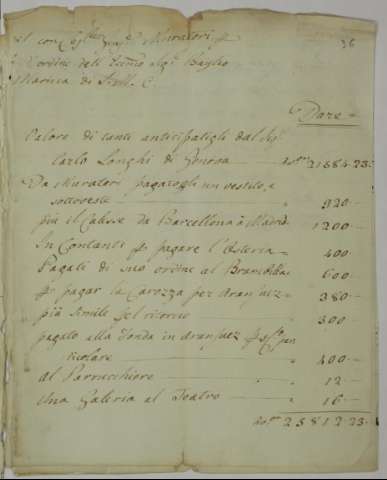 36
Muratori
ordine dell' Baylio
Marina di S. M. C.
Dare
Valore di tanti anticipatigli dal Sigr
Carlo Longhi di Genova 21884.23
Da Muratori pagatogli un vestito, e
sottoveste 920
più il Calesse da Barcellona à Madrid 1200
In Contanti pagare l'Osteria 400
Pagati di suo ordine al Brambilla 600
pagar la Carozza per Aranjuez 380
più simile pel ritorno 300
pagato alla fonda in Aranjuez
ticolare 400
Al Parrucchiere 12
Una Galeria al Teatro 16
23812.23